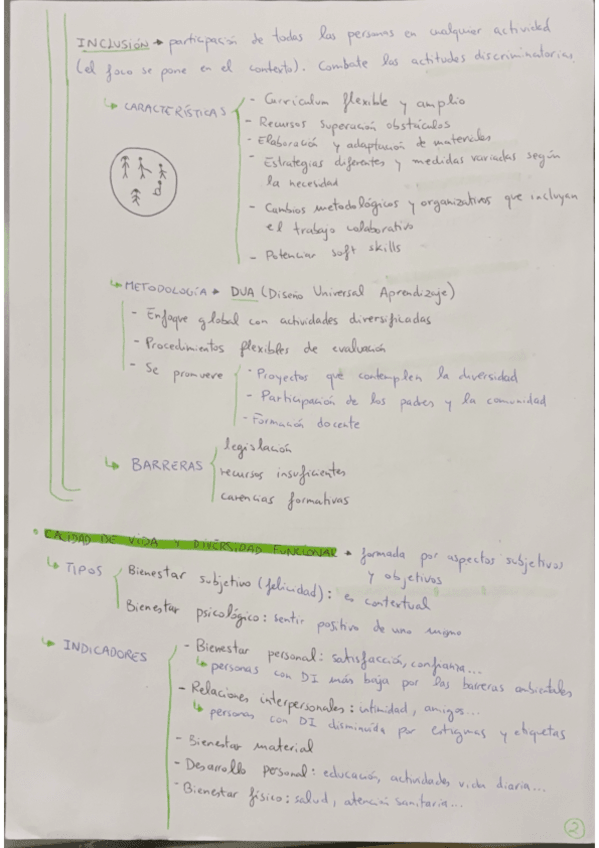 INCLUSIÓN → participación de todas las personas en cualquier actividad
(el foco se pone en el contexto). Combate las actitudes discriminatorias.
↳ CARACTERÍSTICAS
- Currículum flexible y amplio
- Recursos superación obstáculos
- Elaboración y adaptación de materiales
- Estrategias diferentes y medidas variadas según
la necesidad
- Cambios metodológicos y organizativos que incluyan
el trabajo colaborativo
- Potenciar soft skills
↳ METODOLOGÍA → DUA (Diseño Universal Aprendizaje)
- Enfoque global con actividades diversificadas
- Procedimientos flexibles de evaluación
- Se promueve
- Proyectos que contemplen la diversidad
- Participación de los padres y la comunidad
- Formación docente
↳ BARRERAS
legislación
recursos insuficientes
carencias formativas
• CALIDAD DE VIDA Y DIVERSIDAD FUNCIONAL → formada por aspectos subjetivos
y objetivos
↳ TIPOS
Bienestar subjetivo (felicidad): es contextual
Bienestar psicológico: sentir positivo de uno mismo
↳ INDICADORES
- Bienestar personal: satisfacción, confianza...
↳ personas con DI más baja por las barreras ambientales
- Relaciones interpersonales: intimidad, amigos...
↳ personas con DI disminuida por estigmas y etiquetas
- Bienestar material
- Desarrollo personal: educación, actividades vida diaria...
- Bienestar físico: salud, atención sanitaria...
2